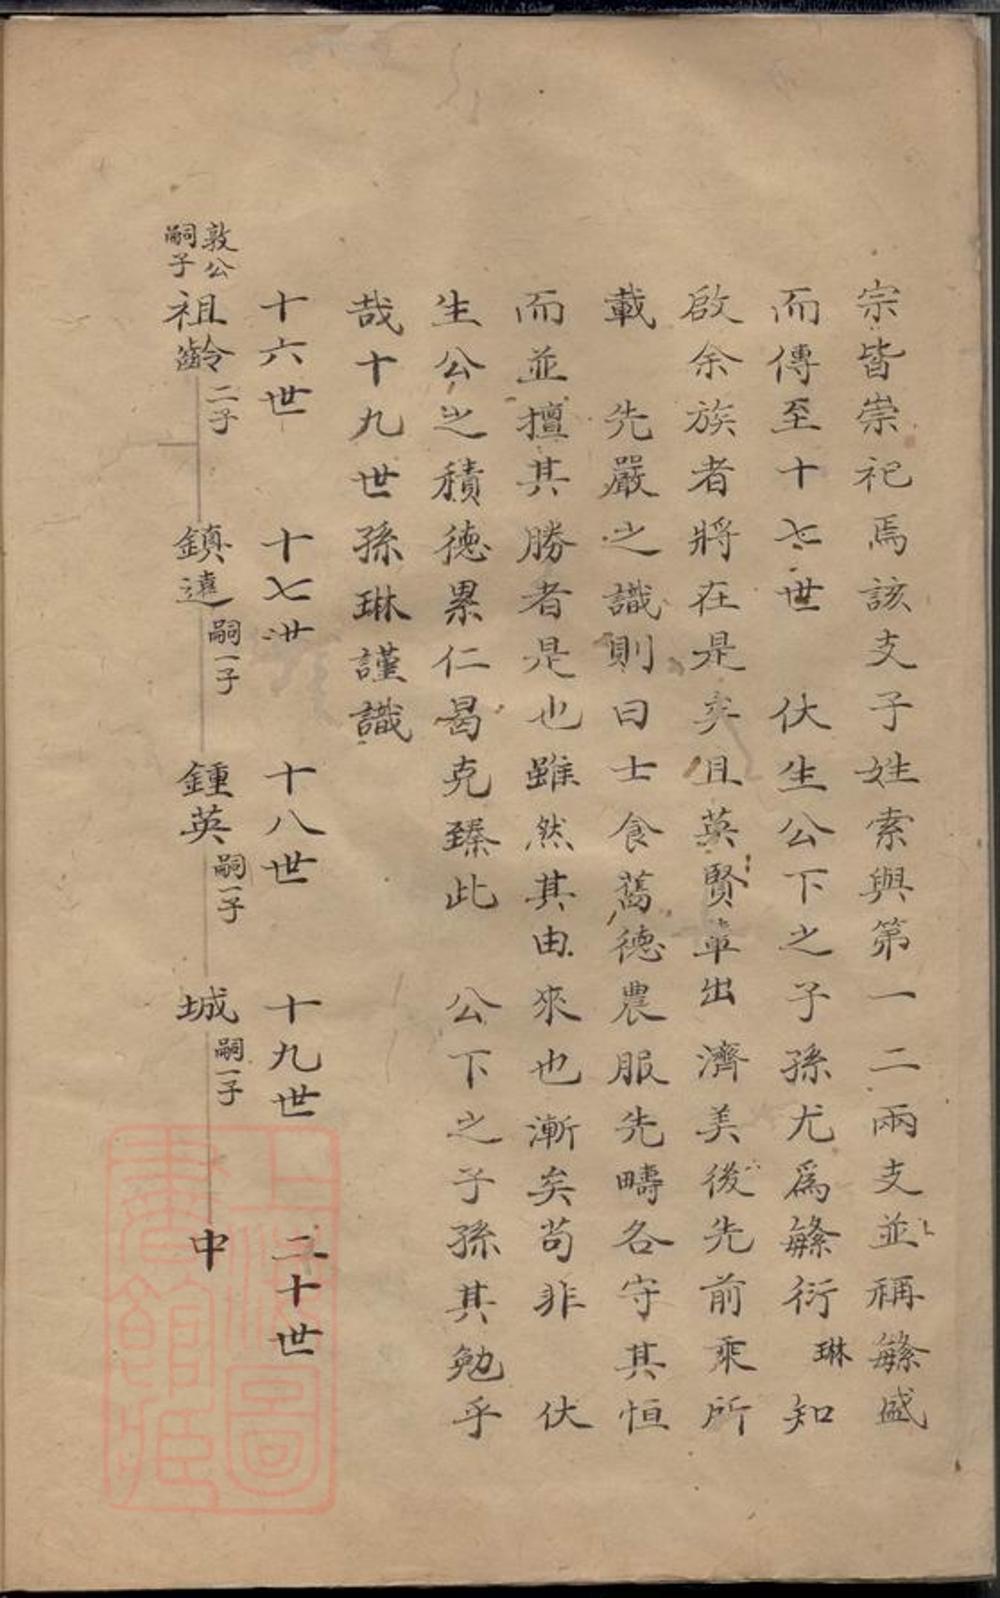 宗皆崇祀焉該支子姓索與第一二兩支並稱繁盛
而傳至十七世　伏生公下之子孫尤爲繁衍琳知
啟余族者將在是矣且英賢輩出濟美後先前乘所
載　先嚴之識則曰士食舊德農服先疇各守其恒
而並擅其勝者是也雖然其由來也漸矣苟非　伏
生公之積德累仁曷克臻此　公下之子孫其勉乎
哉十九世孫琳謹識
十六世　十七世　十八世　十九世　二十世
敦公嗣子祖齡二子　鎮遠嗣一子　鍾英嗣一子　城嗣一子　中
上海圖書館藏